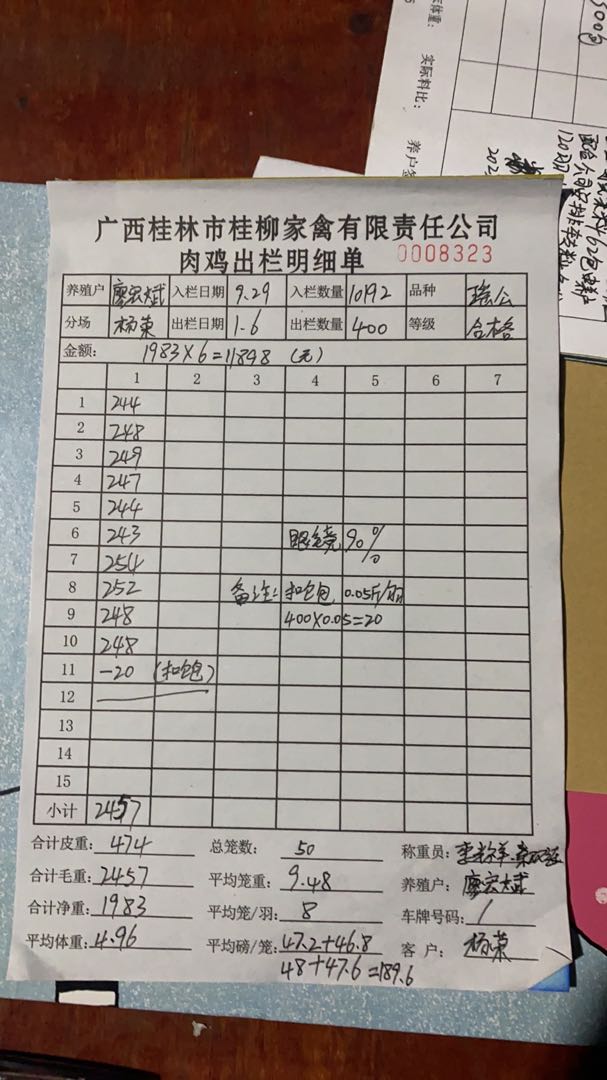 5000
实际体重:
实际料比:
养户签
广西桂林市桂柳家禽有限责任公司
肉鸡出栏明细单 0008323
养殖户 廖宏斌 入栏日期 9.29 入栏数量 10192 品种 瑶公
分场 杨荣 出栏日期 1.6 出栏数量 400 等级 合格
金额: 1983×6=11898 (元)
1 2 3 4 5 6 7
1 244
2 248
3 249
4 247
5 244
6 243 眼镜亮 90%
7 254
8 252 备注: 扣饱 0.05斤/羽
9 248 400×0.05=20
10 248
11 -20 (扣饱)
12
13
14
15
小计 2457
合计皮重: 474 总笼数: 50 称重员:
合计毛重: 2457 平均笼重: 9.48 养殖户: 廖宏斌
合计净重: 1983 平均笼/羽: 8 车牌号码: /
平均体重: 4.96 平均磅/笼: 47.2+46.8 客户: 杨荣
48+47.6=189.6